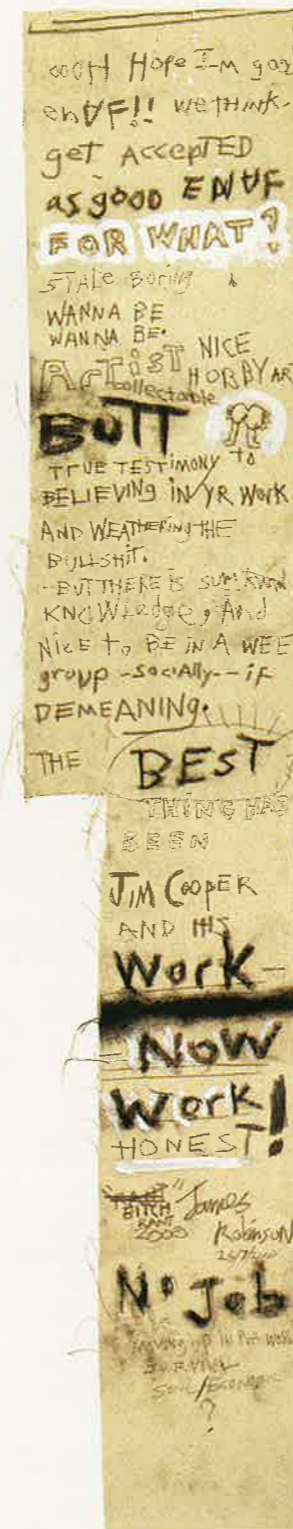 OOOH HOPE I-M goo
enUF!! we tHINK-
get AccepTED
as gooD ENUF
FOR WHAT?
STALE Boring
WANNA BE
WANNA BE.
ArTisT NICE
collectable HOBBY ART
BUTT
TrUE TESTIMONY to
BELIEVING iN YR WOrK
AND WEATHERING THE
BULLSHIT.
-BUT THERE IS
KNOWLedge, And
NicE To BE IN A WEE
group -SociAlly-- if
DEMEANING.
THE BEST
THING HAS
BEEN
JIM CooPER
AND HIS
Work-
-NOW
Work!
HONEST!
BITCH "James
RANT Robinson
2000
No Job
IN THE WORLD
SURVIVAL
SOUL/Economic
?